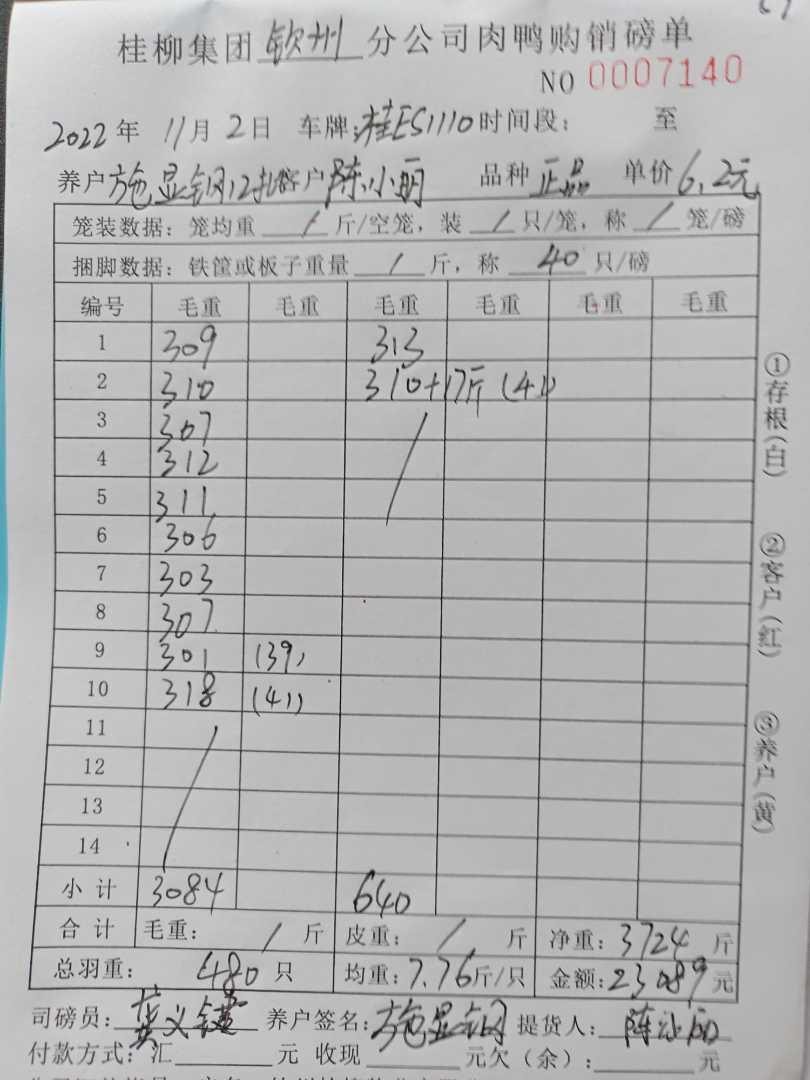 桂柳集团 钦州 分公司肉鸭购销磅单
NO 0007140
2022 年 11月 2日 车牌:桂ES1110 时间段: 至
养户 施显钢 12批 客户 陈小丽 品种 正品 单价 6.2元
笼装数据: 笼均重 / 斤/空笼, 装 / 只/笼, 称 / 笼/磅
捆脚数据: 铁筐或板子重量 / 斤, 称 40 只/磅
编号 毛重 毛重 毛重 毛重 毛重 毛重
1 309 313
2 310 310+17斤 (41)
3 307
4 312
5 311
6 306
7 303
8 307
9 301 (39)
10 318 (41)
11
12
13
14
小 计 3084 640
合 计 毛重: / 斤 皮重: / 斤 净重: 3724 斤
总羽重: 480 只 均重: 7.76 斤/只 金额: 23089 元
司磅员: 养户签名: 施显钢 提货人: 陈小丽
付款方式: 汇 元 收现 元欠(余): 元
①存根(白)
②客户(红)
③养户(黄)